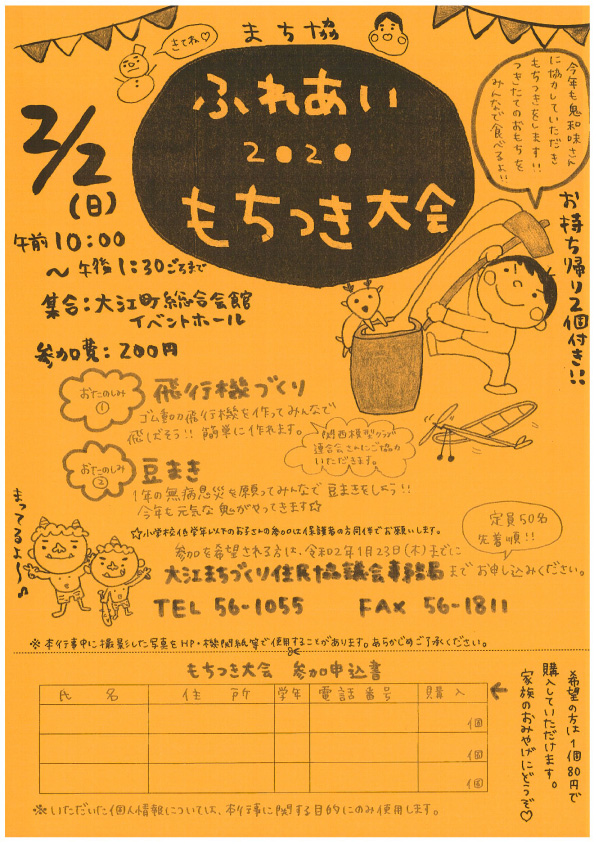 まち協
きてね♡
ふれあい
2020
もちつき大会
2/2
(日)
午前10:00
〜午後1:30ごろまで
集合:大江町総合会館
イベントホール
参加費:200円
今年も鬼和味さん
に協力していただき
もちつきをします!!
つきたてのおもちを
みんなで食べるよ!!
お持ち帰り2個付き!!
おたのしみ①
飛行機づくり
ゴム動力飛行機を作ってみんなで
飛ばそう!! 簡単に作れます。
関西模型クラブ
連合会さんにご協力
いただきます。
おたのしみ②
豆まき
1年の無病息災を願ってみんなで豆まきをしよう!!
今年も元気な鬼がやってきます☆
まってるよ〜♪
☆小学校低学年以下のお子さんの参加は保護者の方同伴でお願いします。
定員50名
先着順!!
参加を希望される方は、令和2年1月23日(木)までに
大江まちづくり住民協議会事務局までお申し込みください。
TEL 56-1055 FAX 56-1811
※本行事中に撮影した写真をHP・機関紙等で使用することがあります。あらかじめご了承ください。
もちつき大会 参加申込書
氏名 住所 学年 電話番号 購入
個
個
個
希望の方は1個80円で
購入していただけます。
家族のおみやげにどうぞ♡
※いただいた個人情報については、本行事に関する目的にのみ使用します。